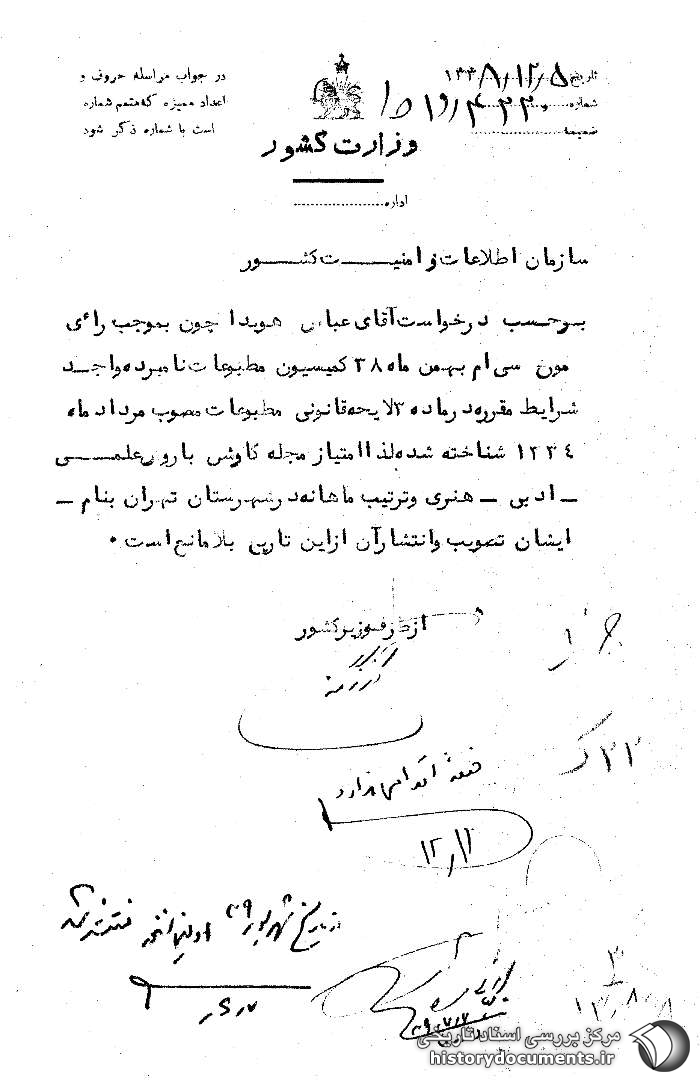 در جواب مراسله حروف و
اعداد ممیزه که متمم شماره
است با شماره ذکر شود
تاریخ ۱۳۳۸/۱۲/۵
شماره
ضمیمه
وزارت کشور
اداره
سازمان اطلاعات و امنیت کشور
برحسب درخواست آقای عباس هویدا چون بموجب رأی
مورخ سی ام بهمن ماه ۳۸ کمیسیون مطبوعات نامبرده واجد
شرایط مقرره در ماده ۳ لایحه قانونی مطبوعات مصوب مرداد ماه
۱۳۳۴ شناخته شده لذا امتیاز مجله کاوش با روش علمی
ـ ادبی ـ هنری و ترتیب ماهانه در شهرستان تهران بنام ـ
ایشان تصویب و انتشار آن از این تاریخ بلامانع است .
از طرف وزیر کشور
فعلا اقدامی ندارد
۱۲/۱۱
از تاریخ شهریور ۳۹ اولین منتشر شده
مرکز بررسی اسناد تاریخی
historydocuments.ir